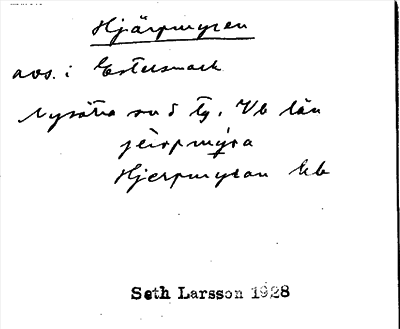 Hjärpmyren
avs. i Estersmark
Nysätra sn o tg. Vb län
jèrpmýra
Hjerpmyran kb
Seth Larsson 1928